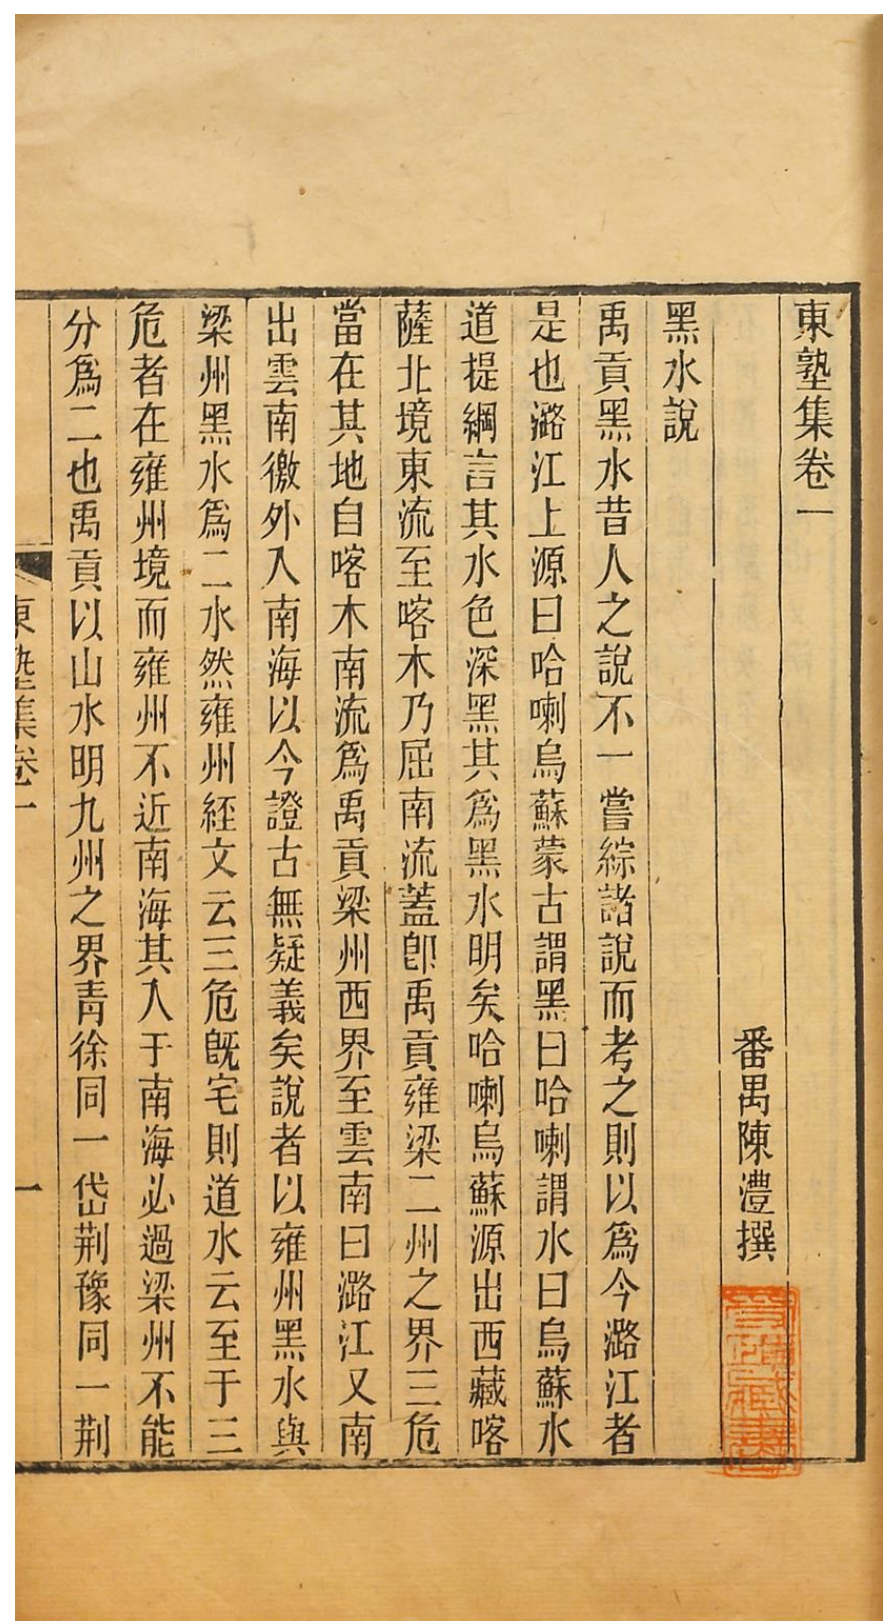 東塾集卷一
番禺陳澧撰
黑水說
禹貢黑水昔人之說不一嘗綜諸說而考之則以爲今潞江者
是也潞江上源曰哈喇烏蘇蒙古謂黑曰哈喇謂水曰烏蘇水
道提綱言其水色深黑其爲黑水明矣哈喇烏蘇源出西藏喀
薩北境東流至喀木乃屈南流蓋卽禹貢雍梁二州之界三危
當在其地自喀木南流爲禹貢梁州西界至雲南曰潞江又南
出雲南徼外入南海以今證古無疑義矣說者以雍州黑水與
梁州黑水爲二水然雍州經文云三危旣宅則道水云至于三
危者在雍州境而雍州不近南海其入于南海必過梁州不能
分爲二也禹貢以山水明九州之界青徐同一岱荆豫同一荆
東塾集卷一
一